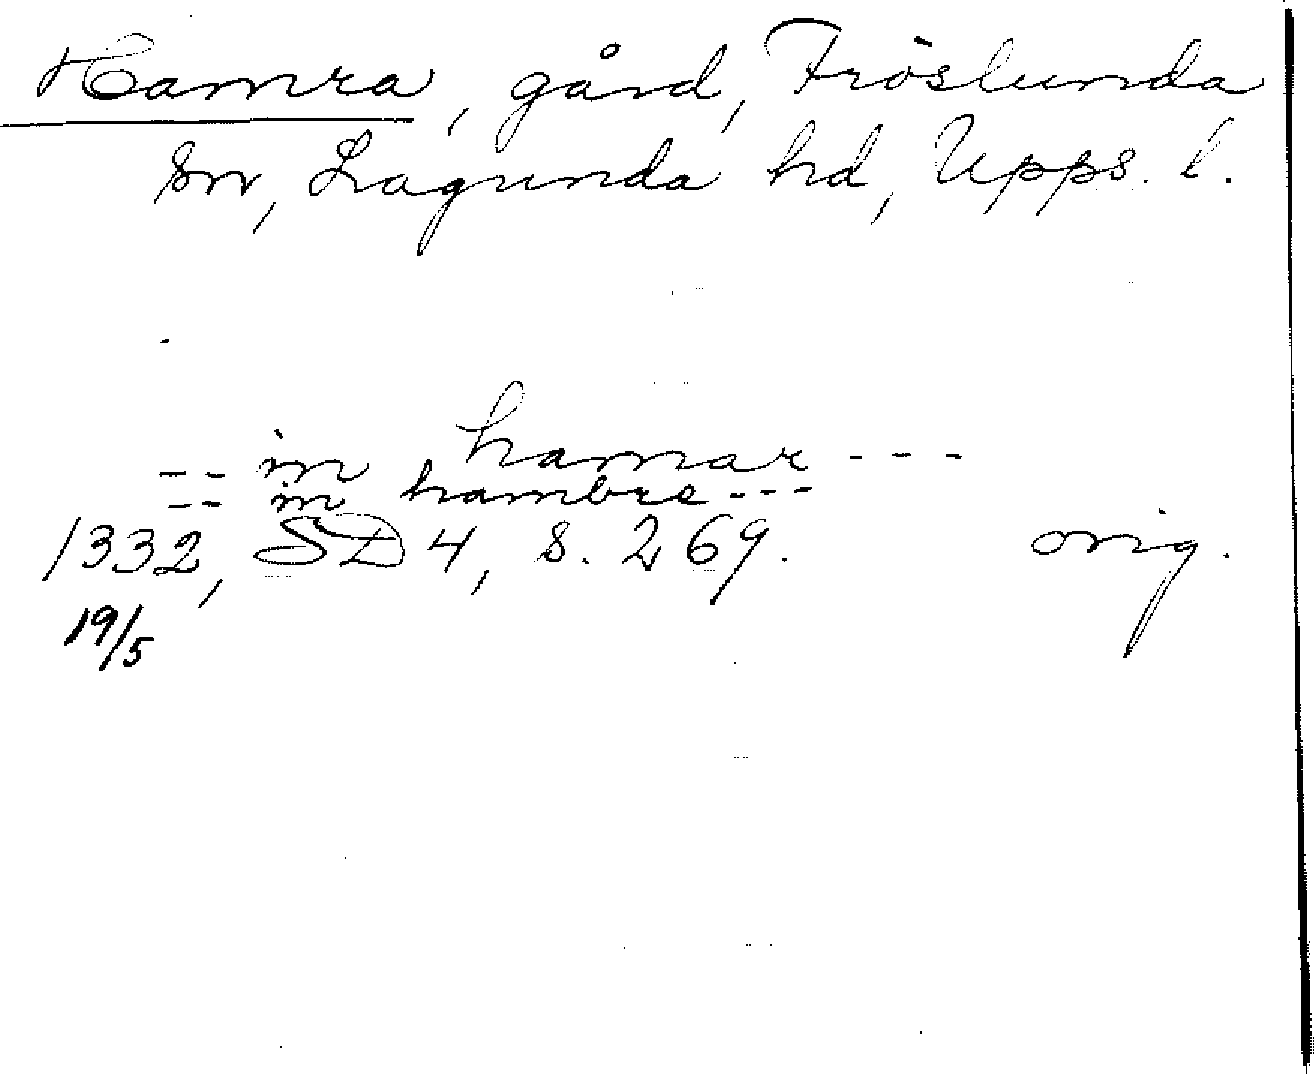 Hamra, gård, Fröslunda
sn, Lagunda hd, Upps. l.
-- in hamar ---
-- in hambre ---
1332, SD 4, s. 269. orig.
19/5